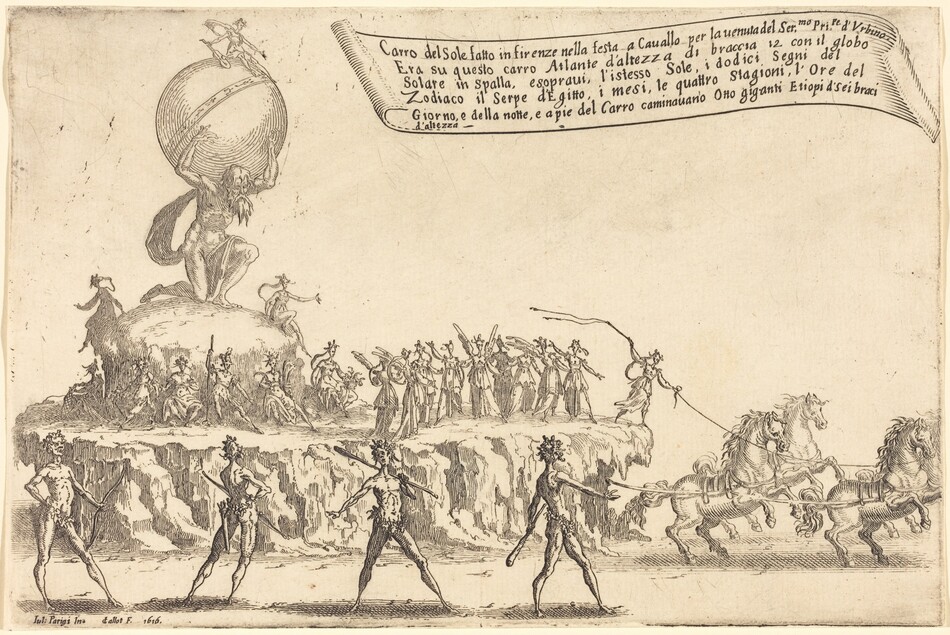 Carro del Sole fatto in firenze nella festa a Cauallo per la uenuta del Ser.mo Pri.pe d'Vrbino
Era su questo carro Atlante d'altezza di braccia 12 con il globo
Solare in Spalla, e sopraui, l'istesso Sole, i dodici Segni del
Zodiaco il Serpe d'Egitto, i mesi, le quattro stagioni, l'Ore del
Giorno, e della notte, e a pie del Carro caminauano Otto giganti Etiopi d'Sei braci
d'altezza
Iul: Parigi In. Callot F. 1616.